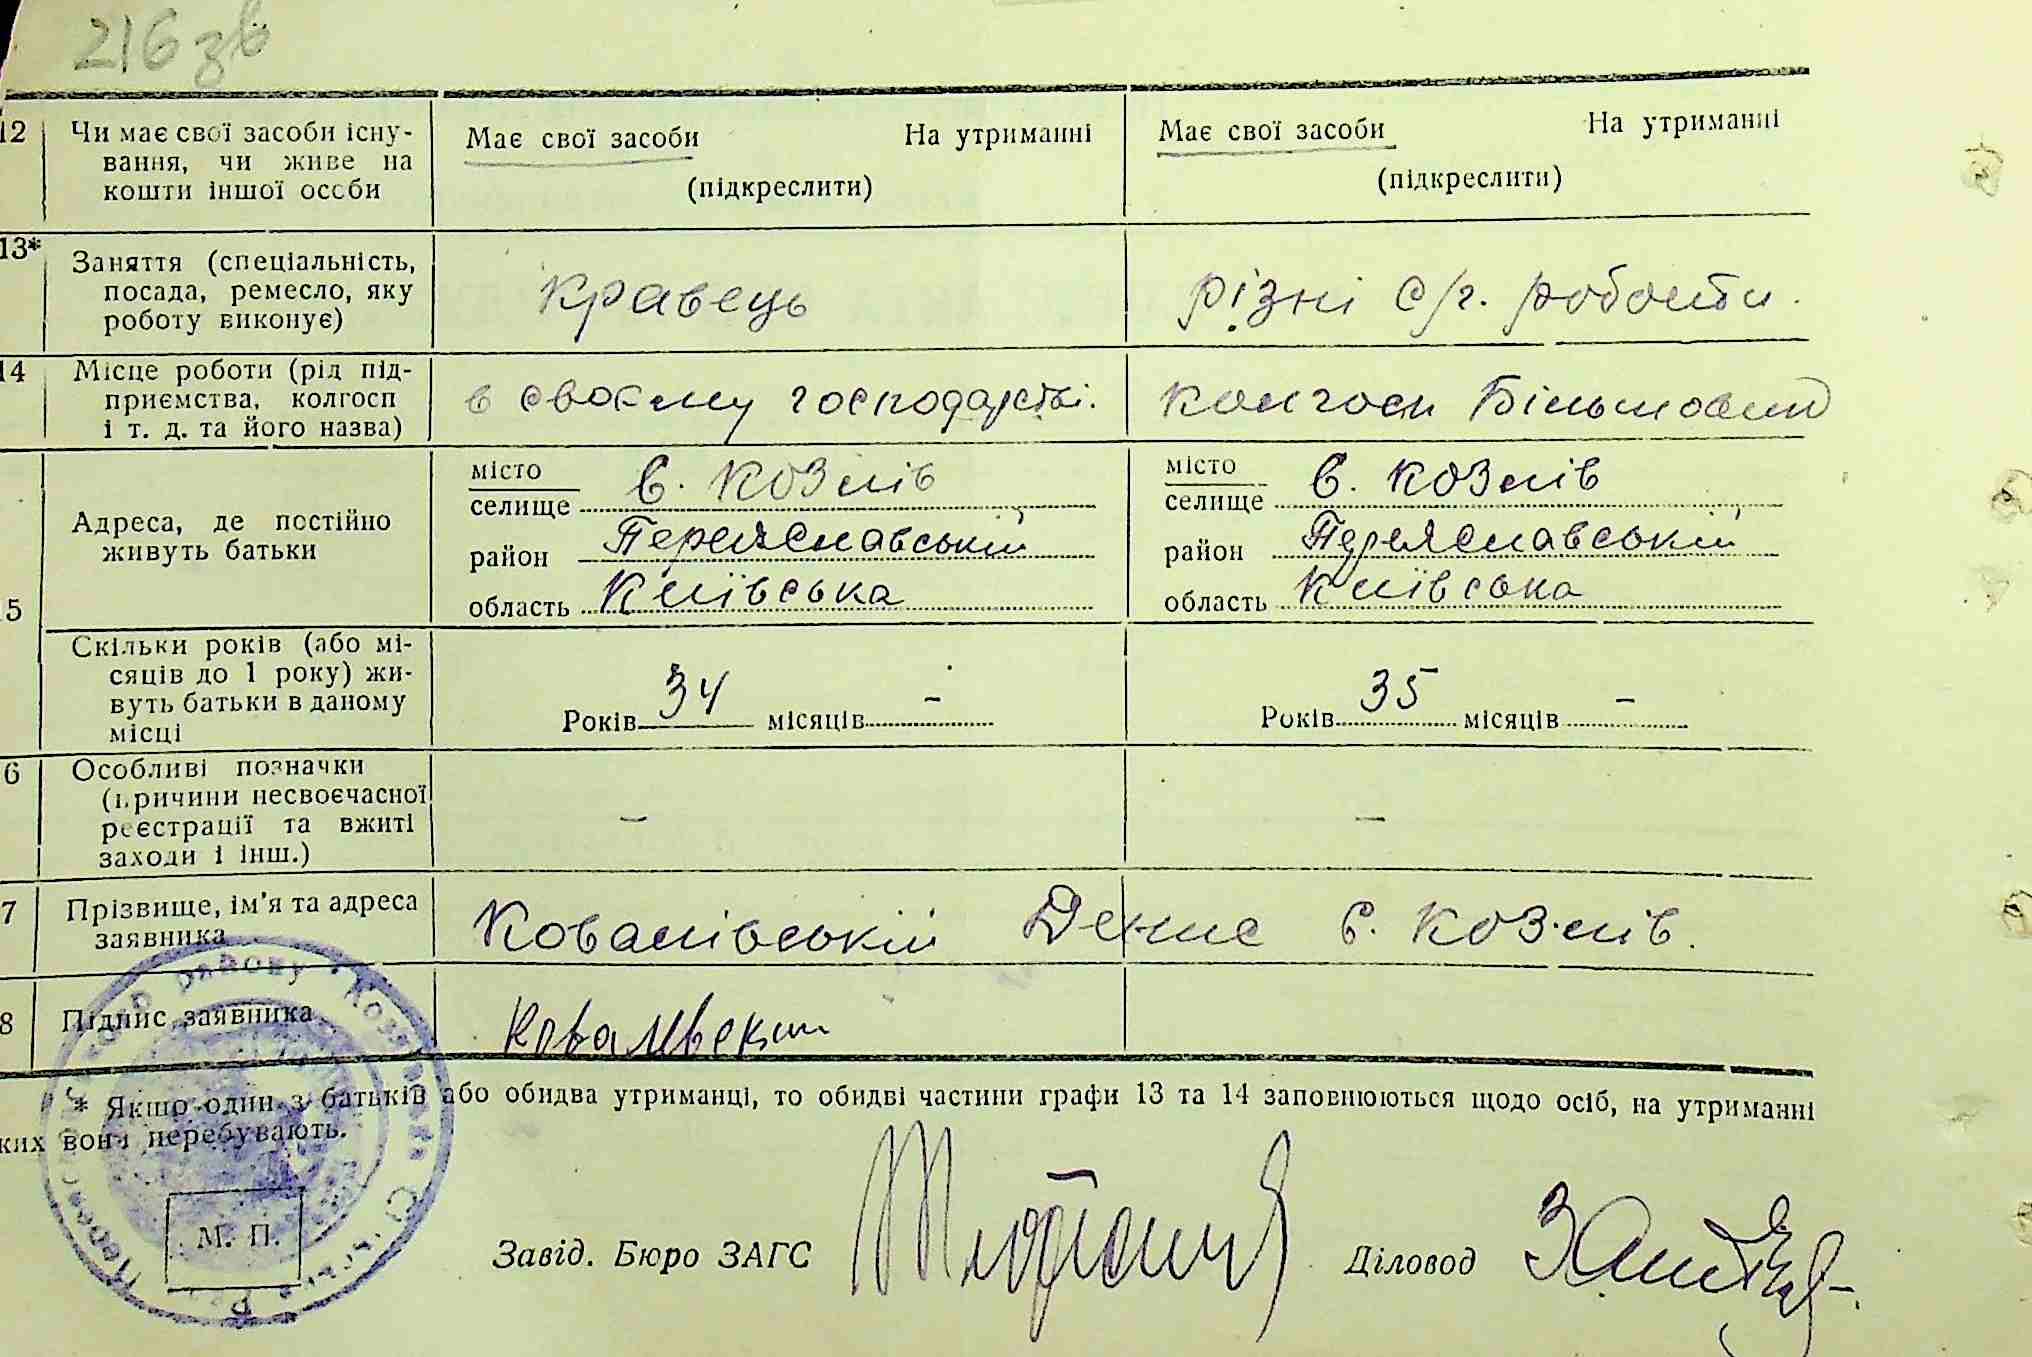 216 зв
12 Чи має свої засоби існу-
вання, чи живе на
кошти іншої особи
Має свої засоби На утриманні
(підкреслити)
Має свої засоби На утриманні
(підкреслити)
13* Заняття (спеціальність,
посада, ремесло, яку
роботу виконує)
кравець
різні с/г. роботи.
14 Місце роботи (рід під-
приємства, колгосп
і т. д. та його назва)
в своєму господарстві.
колгосп Більшовик
5 Адреса, де постійно
живуть батьки
місто
селище в. Козлів
район Переяславський
область Київська
місто
селище в. Козлів
район Переяславський
область Київська
Скільки років (або мі-
сяців до 1 року) жи-
вуть батьки в даному
місці
Років 34 місяців -
Років 35 місяців -
6 Особливі позначки
(причини несвоєчасної
реєстрації та вжиті
заходи і інш.)
-
-
7 Прізвище, ім'я та адреса
заявника
Ковалівський Денис в. Козлів.
8 Підпис заявника
Ковалевский
* Якщо один з батьків або обидва утриманці, то обидві частини графи 13 та 14 заповнюються щодо осіб, на утриманні
ких вони перебувають.
М. П.
Завід. Бюро ЗАГС
Діловод